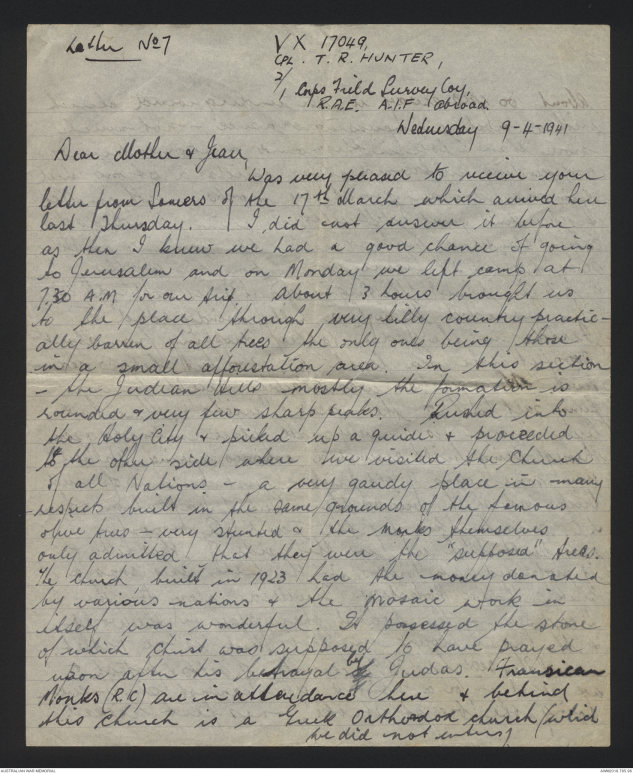 Letter No 7
VX 17049,
CPL. T. R. HUNTER,
2/1 Corps Field Survey Coy,
R.A.E. A.I.F abroad.
Wednesday 9-4-1941
Dear Mother & Jean,
Was very pleased to receive your
letter from Somers of the 17th March which arrived here
last Thursday. I did not answer it before
as then I knew we had a good chance of going
to Jerusalem and on Monday we left camp at
7.30 A.M for our trip. About 3 hours brought us
to the place through very hilly country practic-
ally barren of all trees the only ones being those
in a small afforestation area. In this section
- the Judean Hills mostly the formation is
rounded & very few sharp peaks. Rushed into
the Holy City & picked up a guide & proceeded
to the other side where we visited the Church
of all Nations - a very gaudy place in many
respects built in the same grounds of the famous
olive trees - very stunted & the monks themselves
only admitted that they were the "supposed" trees.
The church built in 1923 had the money donated
by various nations & the Mosaic work in
itself was wonderful. It possessed the stone
of which Christ was supposed to have prayed
upon after his betrayal by Judas. Fransican
Monks (R.C) are in attendance here & behind
this church is a Greek Orthordox church (which
we did not enter)
AUSTRALIAN WAR MEMORIAL